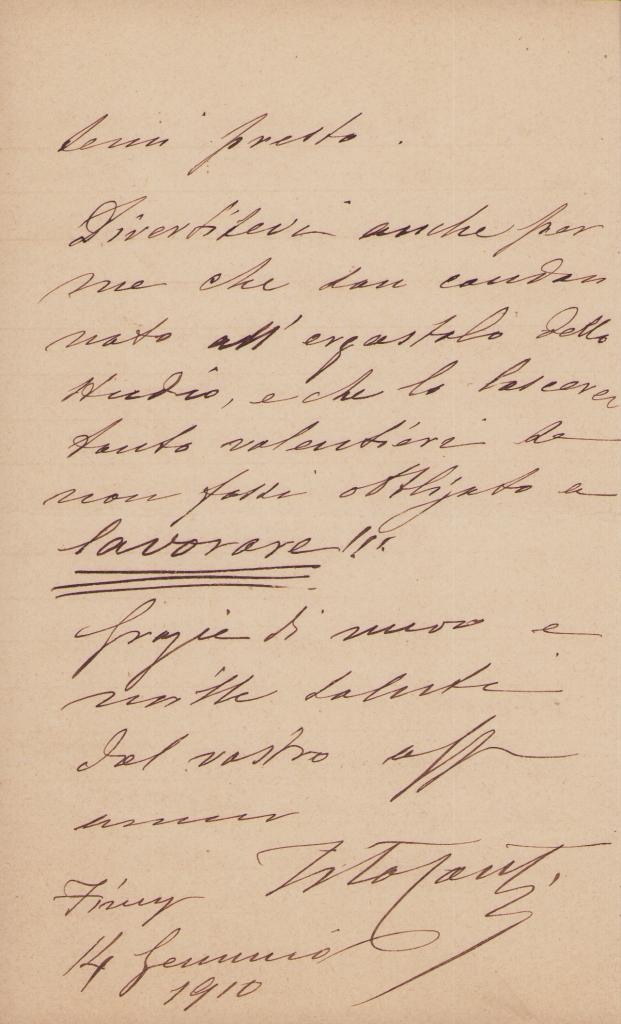 temi presto.
Divertitevi anche per
me che son condan
nato all'ergastolo dello
studio, e che lo lascerei
tanto volentieri se
non fossi obbligato a
lavorare!!!
Grazie di nuovo e
mille saluti
dal vostro aff
amico
14 Gennaio
1910